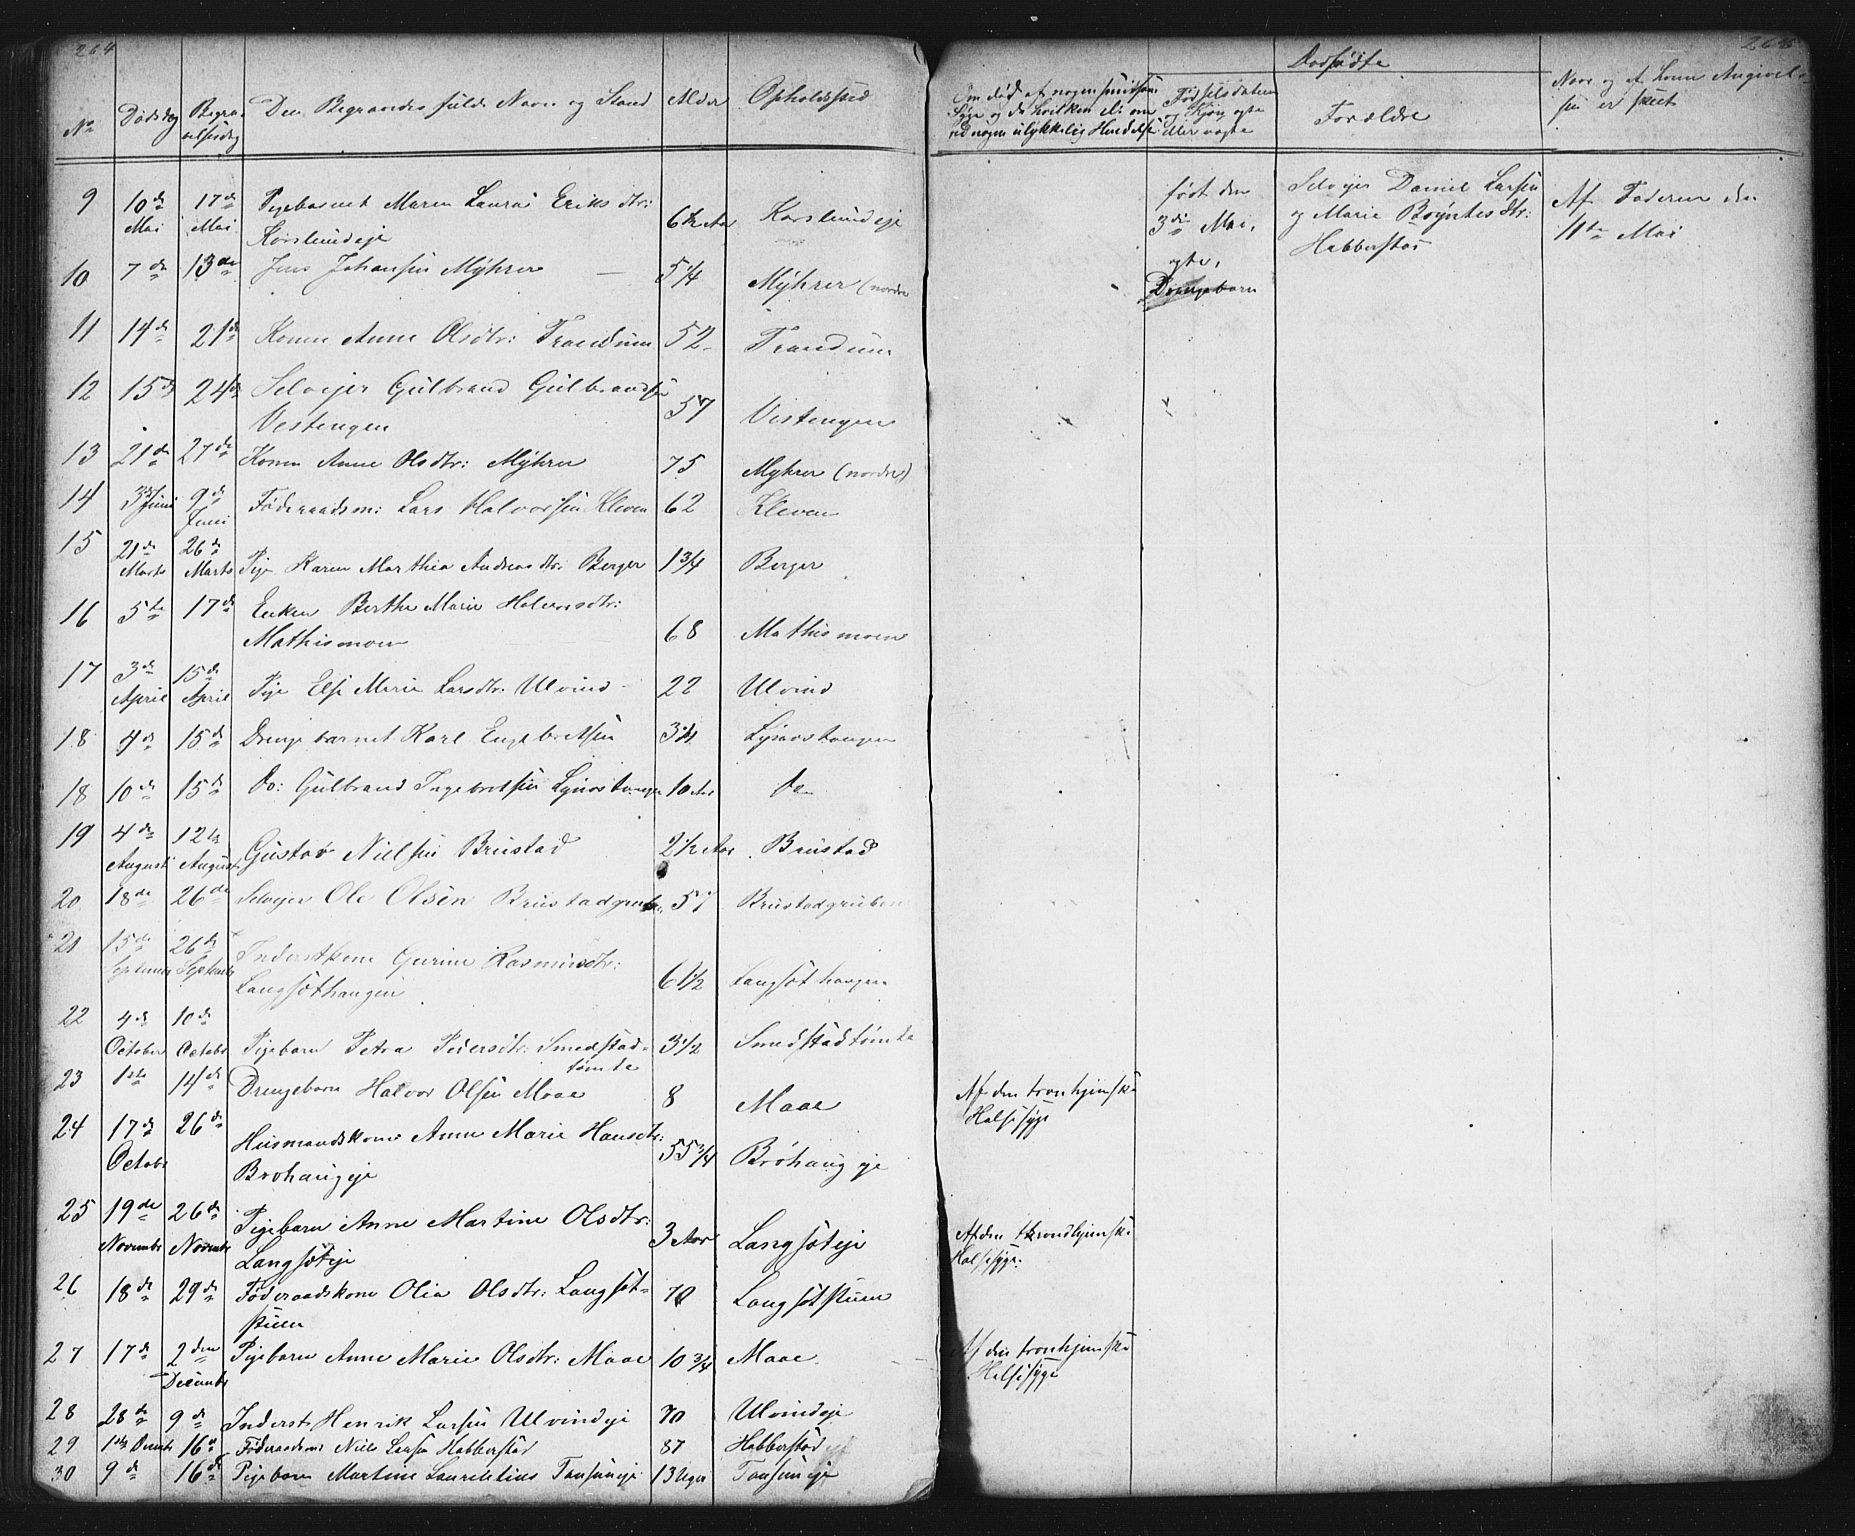 264
No Dødsdag Begravelsesdag Den Begravedes fulde Navn og Stand Alder Opholdssted
9 10de Mai 17de Mai Pigebarnet Maren Laura Eriksdtr:
Korslundeje 6½ Aar Korslundeje
10 7de 13de Jens Johansen Myhrer 5¼ Myhrer (nordre
11 14de 21de Konen Anne Olsdtr: Trandum 52 Trandum
12 15de 24de Selvejer Gulbrand Gulbrandsen
Vestengen 57 Vestengen
13 21de 27de Konen Anne Olsdtr: Myhrer 75 Myhrer (nordre)
14 3die Juni 9de Juni Føderaadsm: Lars Halvorsen Kleven 62 Kleven
15 21de Marts 26de Marts Pige Karen Marthea Andreasdtr: Berger 1¾ Berger
16 5te 17de Enken Berthe Marie Halvorsdtr:
Mathismoen 68 Mathismoen
17 3de April 15de April Pige Else Marie Larsdtr: Ulvind 22 Ulvind
18 4de 15de Drengebarnet Karl Engebretsen 3¼ Lynostangen
18 10de 15de Do: Gulbrand Ingebretsen Lynostangen 10 Aar Do
19 4de August 12te August Gustav Nielsen Brustad 2½ Aar Brustad
20 18de 26de Selvejer Ole Olsen Brustadgruben 57 Brustadgruben
21 15de September 26de September Inderstkone Gurine Rasmusdtr:
Langsæthaugen 61½ Langsæthaugen
22 4de October 10de October Pigebarn Petra Pedersdtr: Smedstad-
tomte 3½ Smedstadtomte
23 1ste 14de Drengebarn Halvor Olsen Maae 8 Maae
24 17de October 26de Husmandskone Anne Marie Hansdtr:
Brohaugeje 55¾ Brohaugeje
25 19de November 26de November Pigebarn Anne Martine Olsdtr:
Langsæteje 3 Aar Langsæteje
26 18de 29de Føderaadskone Olia Olsdtr: Langsæt-
stuen 70 Langsætstuen
27 17de 2den December Pigebarn Anne Marie Olsdtr: Maae 10¾ Maae
28 28de 9de Inderst Henrik Larsen Ulvindeje 70 Ulvindeje
29 1ste Decembr 16de Føderaadsm: Niels Larsen Habberstad 87 Habberstad
30 9de 16de Pigebarn Martine Tansumeje 13 Uger Tansumeje
Dødfødte
Om død af nogen smitsom
Syge og da hvilken eller om
ved nogen ulykkelig Hendelse
Fødselsdatum
og Kjøn ægte
eller uægte
Forældre
Naar og af hvem Angivel-
sen er skeet
født den
3die Mai,
ægte,
Drengebarn
Selvejer Daniel Larsen
og Marie Bryntesdtr:
Habberstad
Af Faderen den
11te Mai
Af den tronhjemske
Halssyge
Af den throndhjemske
Halssyge.
Af den tronhjemske
Halssyge